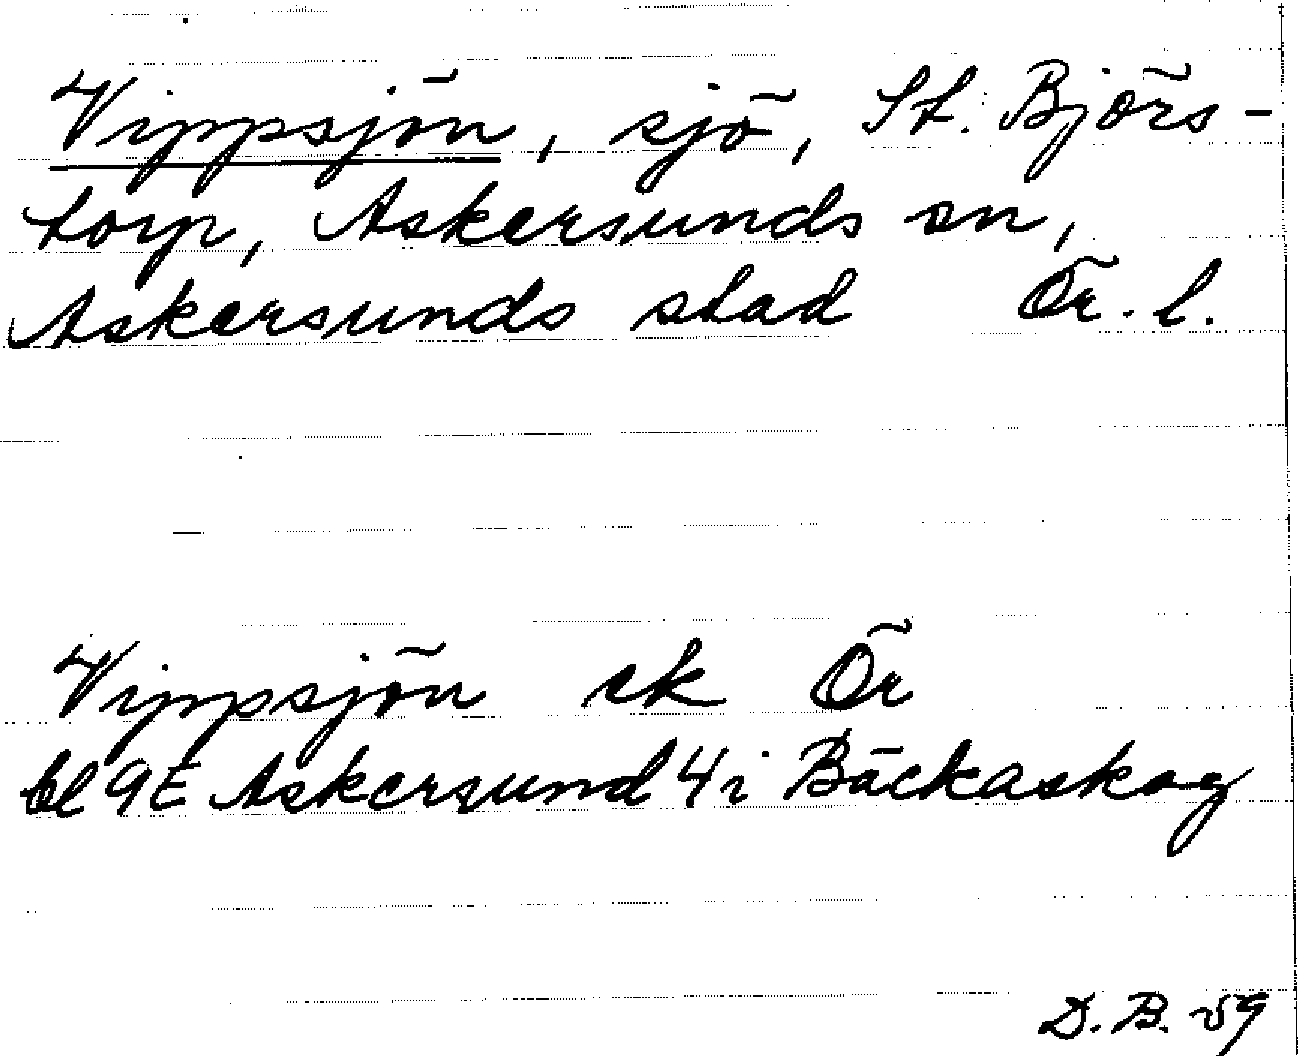 Vippsjön, sjö, St. Björs-
torp, Askersunds sn,
Askersunds stad Ör. l.
Vippsjön ek Ör
bl 9E Askersund 4i Bäckaskog
D. B. 59